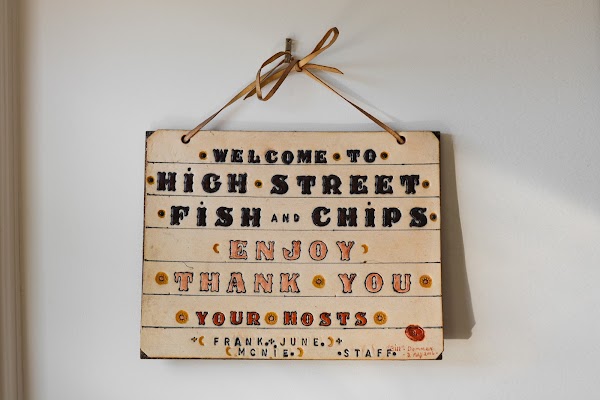 WELCOME TO
HiGH STREET
FiSH AND CHiPS
ENJOY
THANK YOU
YOUR HOSTS
FRANK + JUNE
MCNIE. • STAFF.